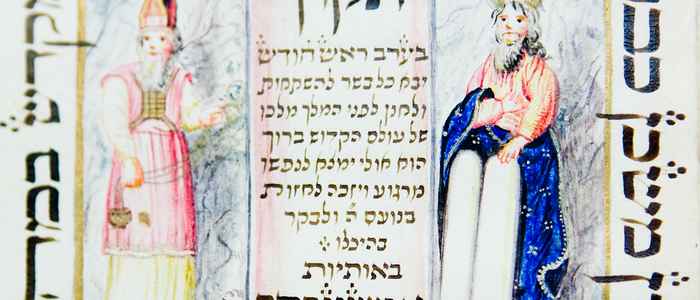 מקדש
בערב ראש חודש
יבא כל בשר להשתחות
ולחנן לפני המלך מלכו
של עולם הקדוש ברוך
הוא אולי ימצא לנפשו
מרגוע ויזכה לחזות
בנועם ה' ולבקר
בהיכלו
באותיות
משכן